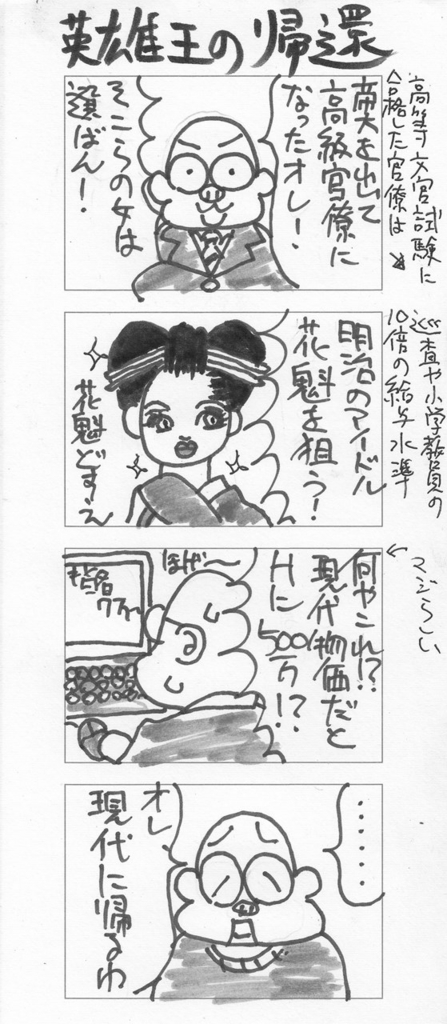 英雄王の帰還
高等文官試験に
合格した官僚は
帝大を出て
高級官僚に
なったオレ！
そこらの女は
選ばん！
巡査や小学教員の
10倍の給与水準
明治のアイドル
花魁を狙う！
花魁どすえ
マジらしい
何やこれ!?
現代物価だと
Hに500万!?
ほげ〜
‥‥‥
オレ、
現代に帰るわ